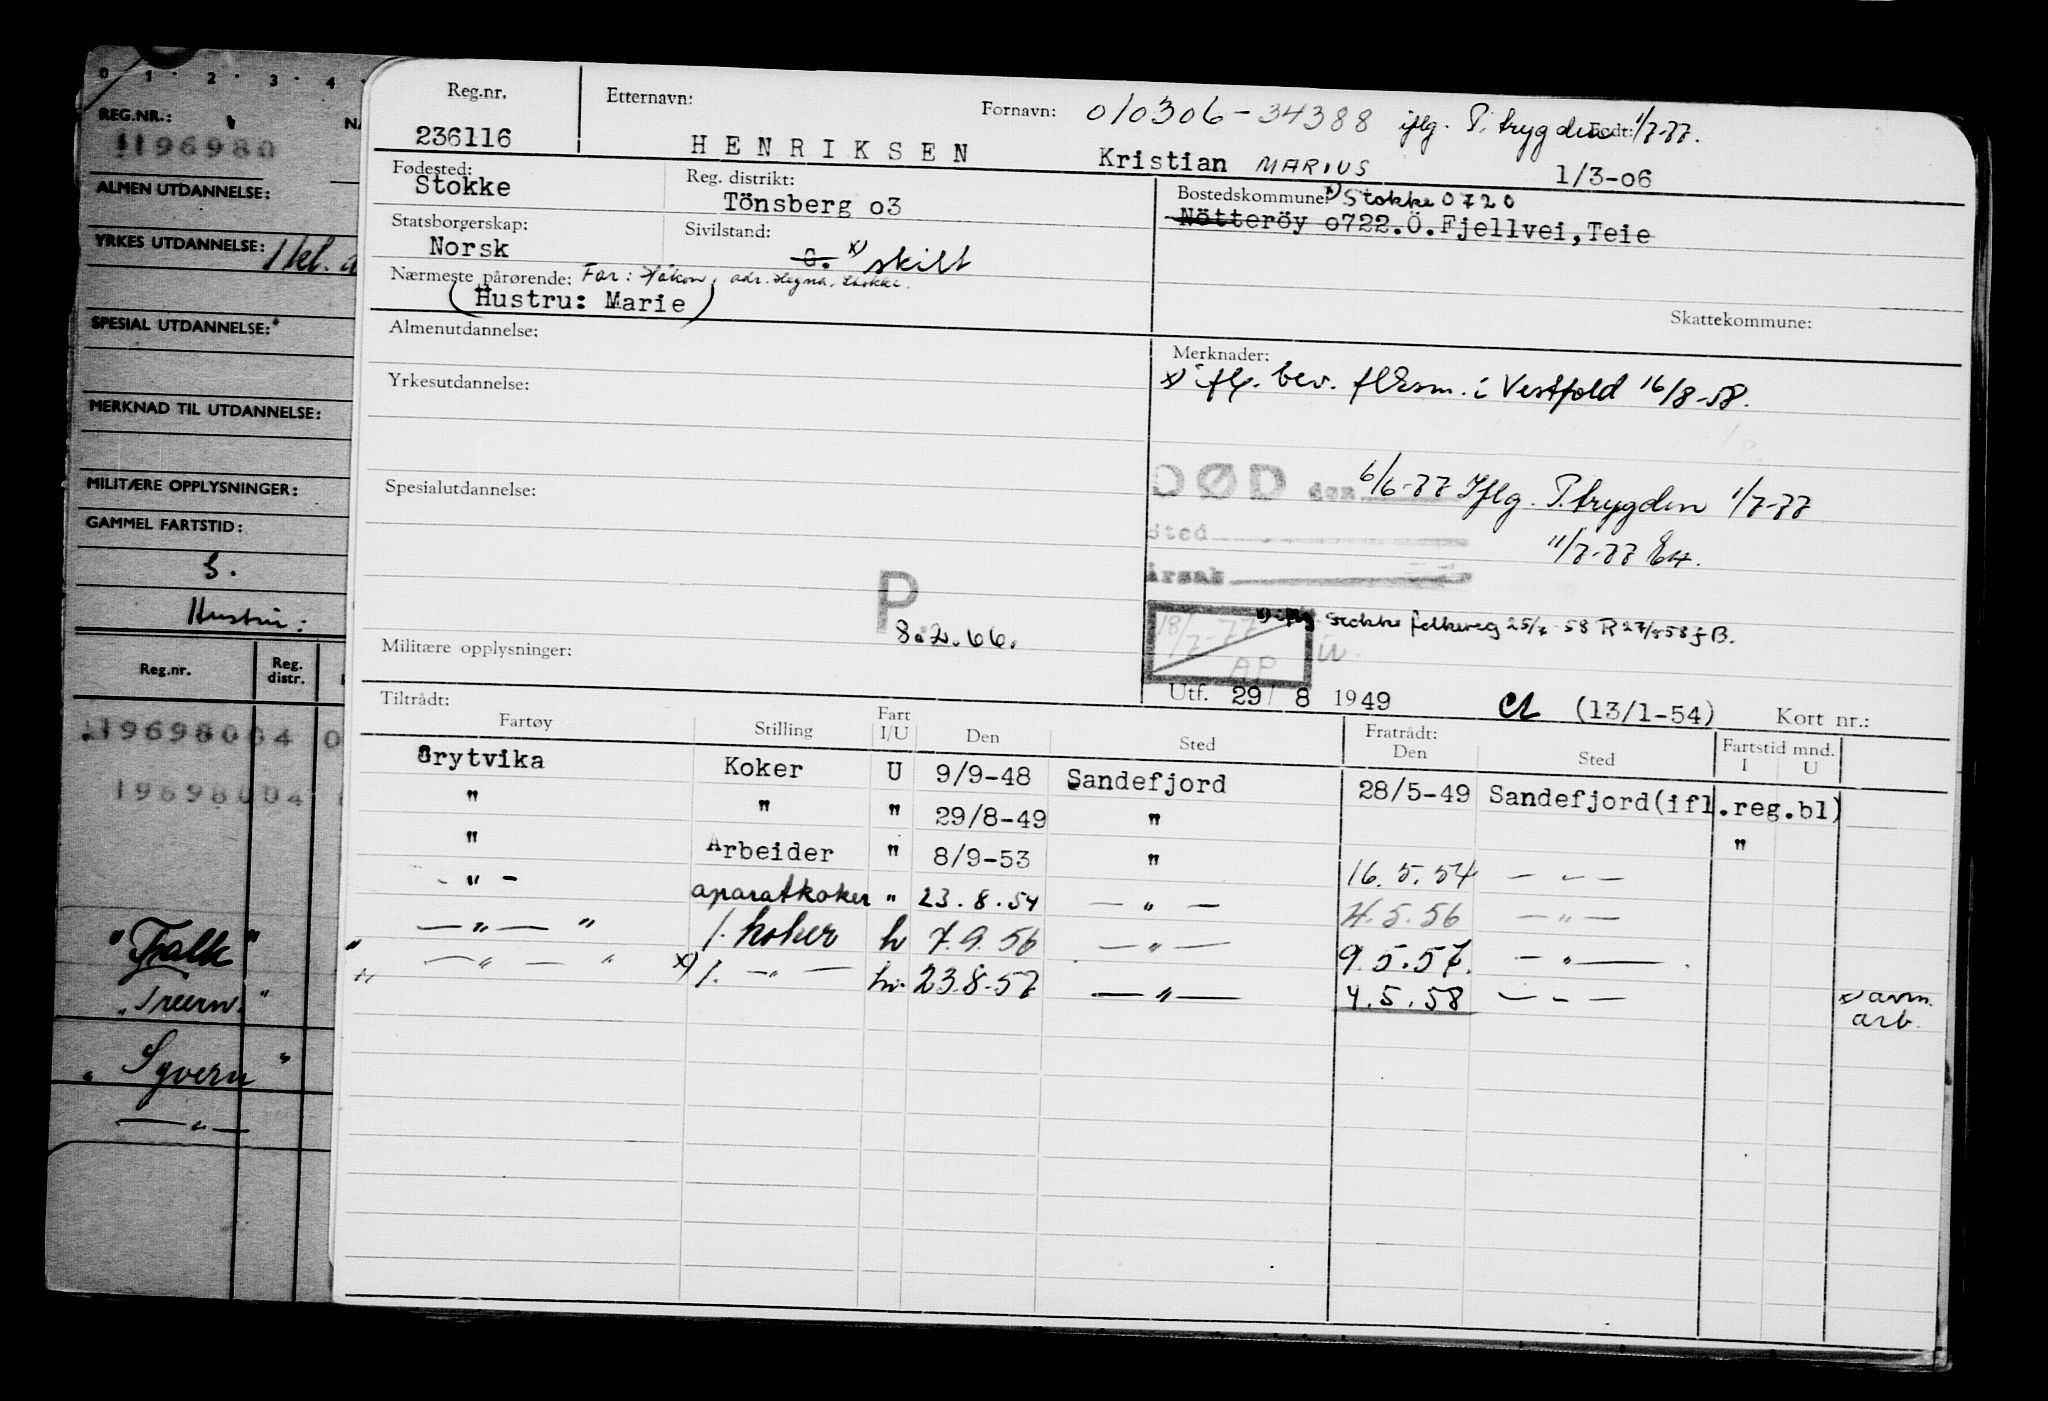 0 1 2 3 4
REG.NR.:
1196980
ALMEN UTDANNELSE:
YRKES UTDANNELSE: 1 kl.
SPESIAL UTDANNELSE:
MERKNAD TIL UTDANNELSE:
MILITÆRE OPPLYSNINGER:
GAMMEL FARTSTID:
Hustru:
Reg.nr. Reg. distr.
119698004 0
19698004
"Falk"
"Syvern"
— " —
Reg.nr. Etternavn: Fornavn: 010306-34388 iflg. P. trygden Født: 1/7-77.
236116 HENRIKSEN Kristian MARIUS 1/3-06
Fødested: Reg. distrikt: Bostedskommune: x) Stokke 0720
Stokke Tönsberg o3 Nötteröy o722.Ö.Fjellvei,Teie
Statsborgerskap: Sivilstand:
Norsk G. x) skilt
Nærmeste pårørende: Far: Håkon, adr. Hegna, Stokke.
(Hustru: Marie)
Skattekommune:
Almenutdannelse: Merknader:
x) iflg. bev. fl Ksm. i Vestfold 16/8-58.
Yrkesutdannelse:
DØD den 6/6-77 Iflg. P.trygden 1/7-77
Spesialutdannelse:
Sted 11/7-77 EH.
Årsak
P
8.2.66.
x) iflg Stokke folkereg 25/7-58 R 27/8 58 f B.
18/7-77
AP
Militære opplysninger:
Utf. 29/ 8 1949 (13/1-54) Kort nr.:
Tiltrådt: Fratrådt: Fartstid mnd.
Fartøy Stilling Fart I/U Den Sted Den Sted I U
Grytvika Koker U 9/9-48 Sandefjord 28/5-49 Sandefjord(ifl.reg.bl)
" " " 29/8-49 " "
" Arbeider " 8/9-53 " 16.5.54 — " —
- " - aparatkoker " 23.8.54 — " — 4.5.56 — " —
" — " — " 1. koker h 7.9.56 — " — 9.5.57. — " —
" — " — " x) 1. — " — hv. 23.8.57 — " — 4.5.58 — " — x) avm.
arb.